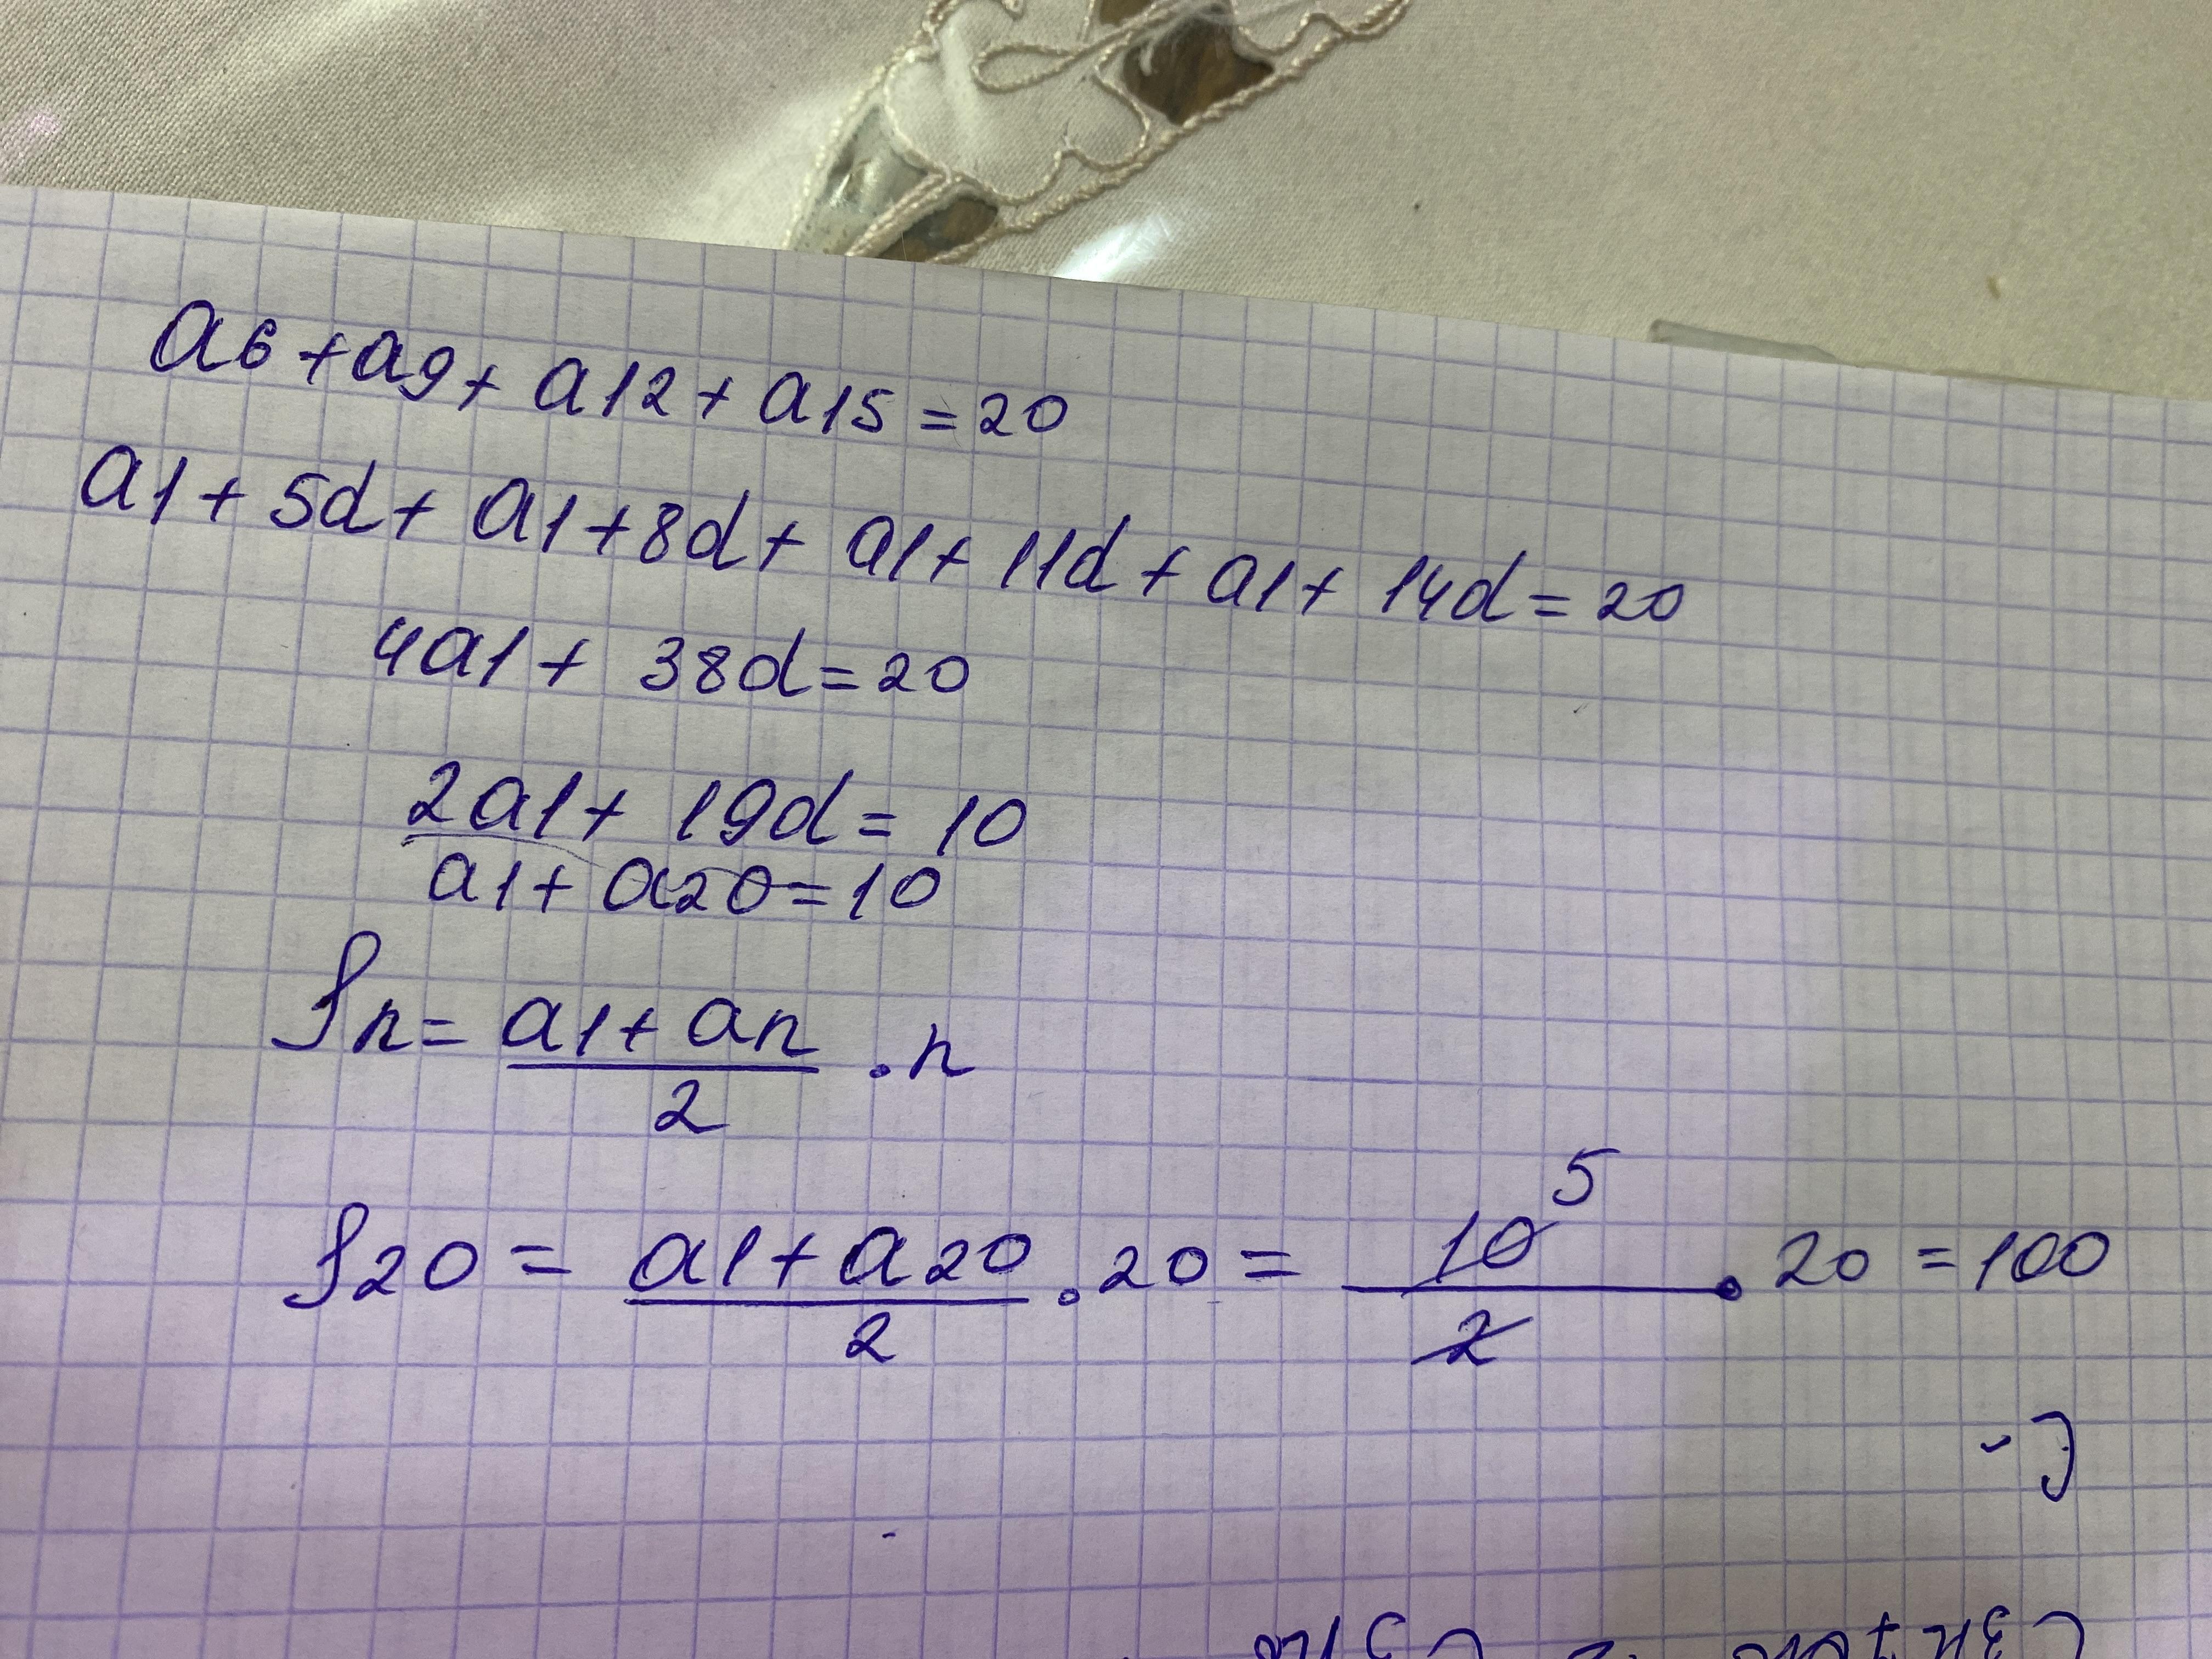 a6 + a9 + a12 + a15 = 20
a1 + 5d + a1 + 8d + a1 + 11d + a1 + 14d = 20
4a1 + 38d = 20
2a1 + 19d = 10
a1 + a20 = 10
Sn = a1 + an / 2 · n
S20 = a1 + a20 / 2 · 20 = 10 5 / 2 · 20 = 100